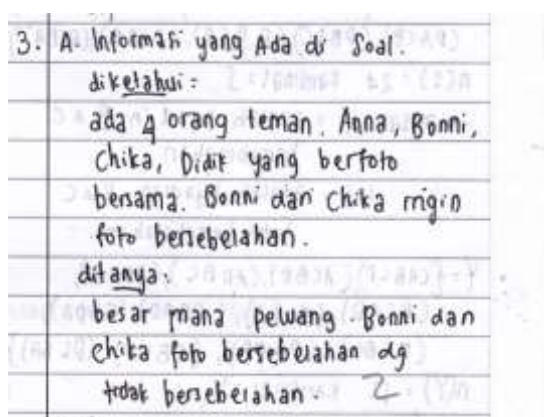 3. A. Informasi yang Ada di Soal.
diketahui :
ada 4 orang teman. Anna, Bonni,
Chika, Didit yang berfoto
bersama. Bonni dan Chika ingin
foto bersebelahan.
ditanya :
besar mana peluang. Bonni dan
Chika foto bersebelahan dg
tidak bersebelahan. 2